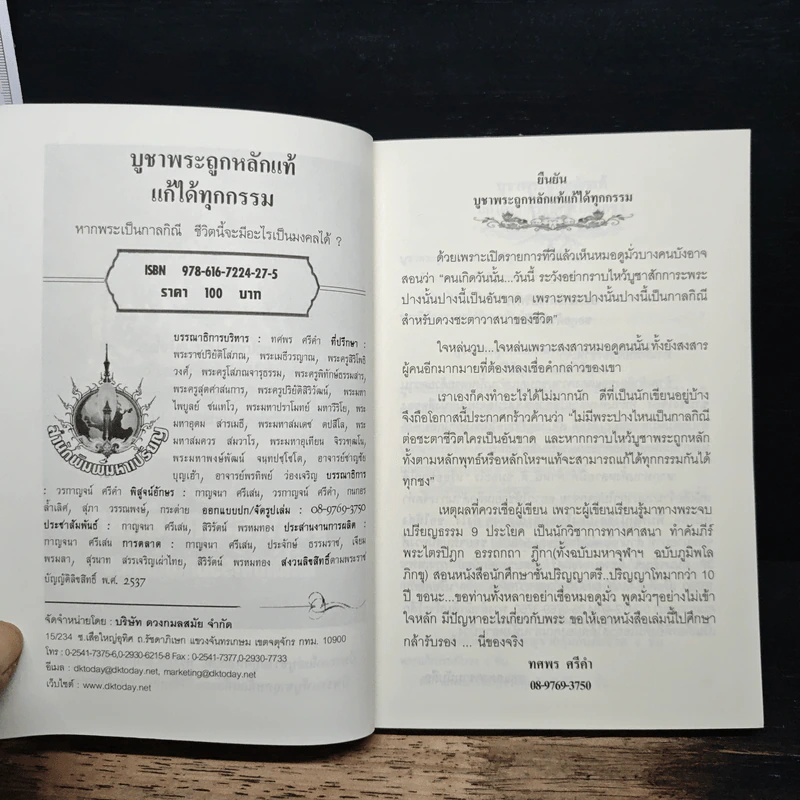 บูชาพระถูกหลักแท้
แก้ได้ทุกกรรม
หากพระเป็นกาลกิณี ชีวิตนี้จะมีอะไรเป็นมงคลได้ ?
ISBN 978-616-7224-27-5
ราคา 100 บาท
บรรณาธิการบริหาร : ทศพร ศรีคำ ที่ปรึกษา :
พระราชปริยัติโสภณ, พระเมธีวรญาณ, พระครูสิริโพธิ
วงศ์, พระครูโสภณจารุธรรม, พระครูพิทักษ์ธรรมสาร,
พระครูสุตคำสมการ, พระครูปริยัติสิริวัฒน์, พระมหา
ไพบูลย์ ชนเทโว, พระมหาปราโมทย์ มหาวีริโย, พระ
มหาอุดม สารเมธี, พระมหาสมเดช ตปสีโล, พระ
มหาสมควร สมวาโร, พระมหาอุเทียน จิรวฑฺฒโน,
พระมหาพงษ์พัฒน์ จนฺทปชฺโชโต, อาจารย์ชาญชัย
บุญเฮ้า, อาจารย์พรทิพย์ ว่องเจริญ บรรณาธิการ
: วรกาญจน์ ศรีคำ พิสูจน์อักษร : กาญจนา ศรีเสน, วรกาญจน์ ศรีคำ, กนกอร
ล้ำเลิศ, สุภา วรรณพงษ์, กระต่าย ออกแบบปก/จัดรูปเล่ม : 08-9769-3750
ประชาสัมพันธ์ : กาญจนา ศรีเสน, สิริรัตน์ พรหมทอง ประสานงานการผลิต :
กาญจนา ศรีเสน การตลาด : กาญจนา ศรีเสน, ประจักษ์ ธรรมราช, เจียม
พรมลา, สุรนาท สรรเจริญเผ่าไทย, สิริรัตน์ พรหมทอง สงวนลิขสิทธิ์ตามพระราช
บัญญัติลิขสิทธิ์ พ.ศ. 2537
สำนักพิมพ์มหาเปรียญ
จัดจำหน่ายโดย : บริษัท ดวงกมลสมัย จำกัด
15/234 ซ.เสือใหญ่อุทิศ ถ.รัชดาภิเษก แขวงจันทรเกษม เขตจตุจักร กทม. 10900
โทร : 0-2541-7375-6,0-2930-6215-8 Fax : 0-2541-7377,0-2930-7733
อีเมล : dktoday@dktoday.net, marketing@dktoday.net
เว็บไซต์ : www.dktoday.net
ยืนยัน
บูชาพระถูกหลักแท้แก้ได้ทุกกรรม
ด้วยเพราะเปิดรายการทีวีแล้วเห็นหมอดูมั่วบางคนบังอาจ
สอนว่า “คนเกิดวันนั้น...วันนี้ ระวังอย่ากราบไหว้บูชาสักการะพระ
ปางนั้นปางนี้เป็นอันขาด เพราะพระปางนั้นปางนี้เป็นกาลกิณี
สำหรับดวงชะตาวาสนาของชีวิต”
ใจหล่นวูบ...ใจหล่นเพราะสงสารหมอดูคนนั้น ทั้งยังสงสาร
ผู้คนอีกมากมายที่ต้องหลงเชื่อคำกล่าวของเขา
เราเองก็คงทำอะไรได้ไม่มากนัก ดีที่เป็นนักเขียนอยู่บ้าง
จึงถือโอกาสนี้ประกาศกร้าวค้านว่า “ไม่มีพระปางไหนเป็นกาลกิณี
ต่อชะตาชีวิตใครเป็นอันขาด และหากกราบไหว้บูชาพระถูกหลัก
ทั้งตามหลักพุทธหรือหลักโหรฯแท้จะสามารถแก้ได้ทุกกรรมกันได้
ทุกชง”
เหตุผลที่ควรเชื่อผู้เขียน เพราะผู้เขียนเรียนรู้มาทางพระจบ
เปรียญธรรม 9 ประโยค เป็นนักวิชาการทางศาสนา ทำคัมภีร์
พระไตรปิฎก อรรถกถา ฎีกา(ทั้งฉบับมหาจุฬาฯ ฉบับภูมิพโล
ภิกขุ) สอนหนังสือนักศึกษาชั้นปริญญาตรี..ปริญญาโทมากว่า 10
ปี ขอนะ...ขอท่านทั้งหลายอย่าเชื่อหมอดูมั่ว พูดมั่วๆอย่างไม่เข้า
ใจหลัก มีปัญหาอะไรเกี่ยวกับพระ ขอให้เอาหนังสือเล่มนี้ไปศึกษา
กล้ารับรอง ... นี่ของจริง
ทศพร ศรีคำ
08-9769-3750